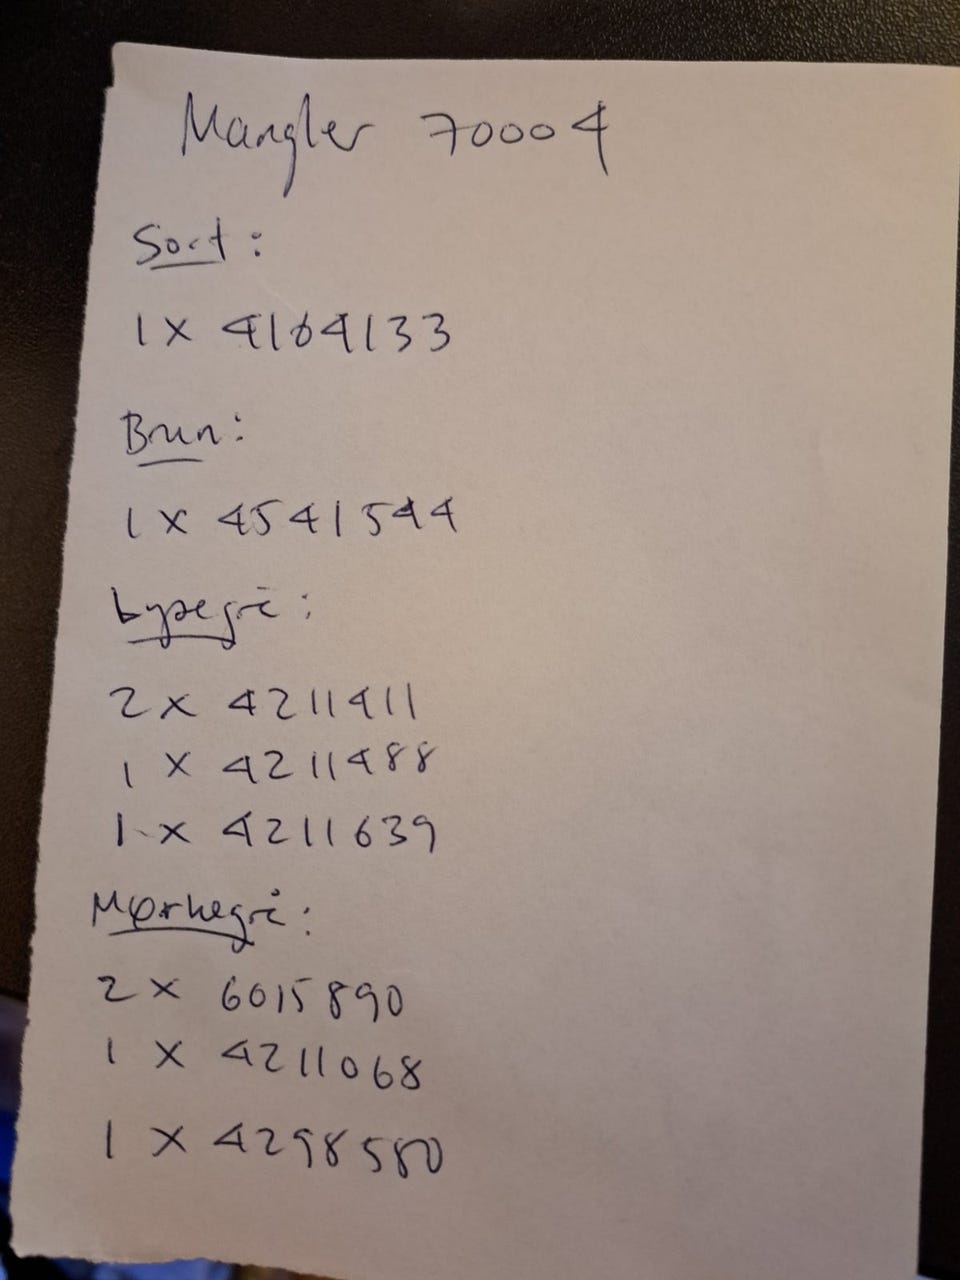 Mangler 70004
Sort:
1 x 4164133
Brun:
1 x 4541544
Lysegrå:
2 x 4211411
1 x 4211488
1 x 4211639
Mørkegrå:
2 x 6015890
1 x 4211068
1 x 4298580